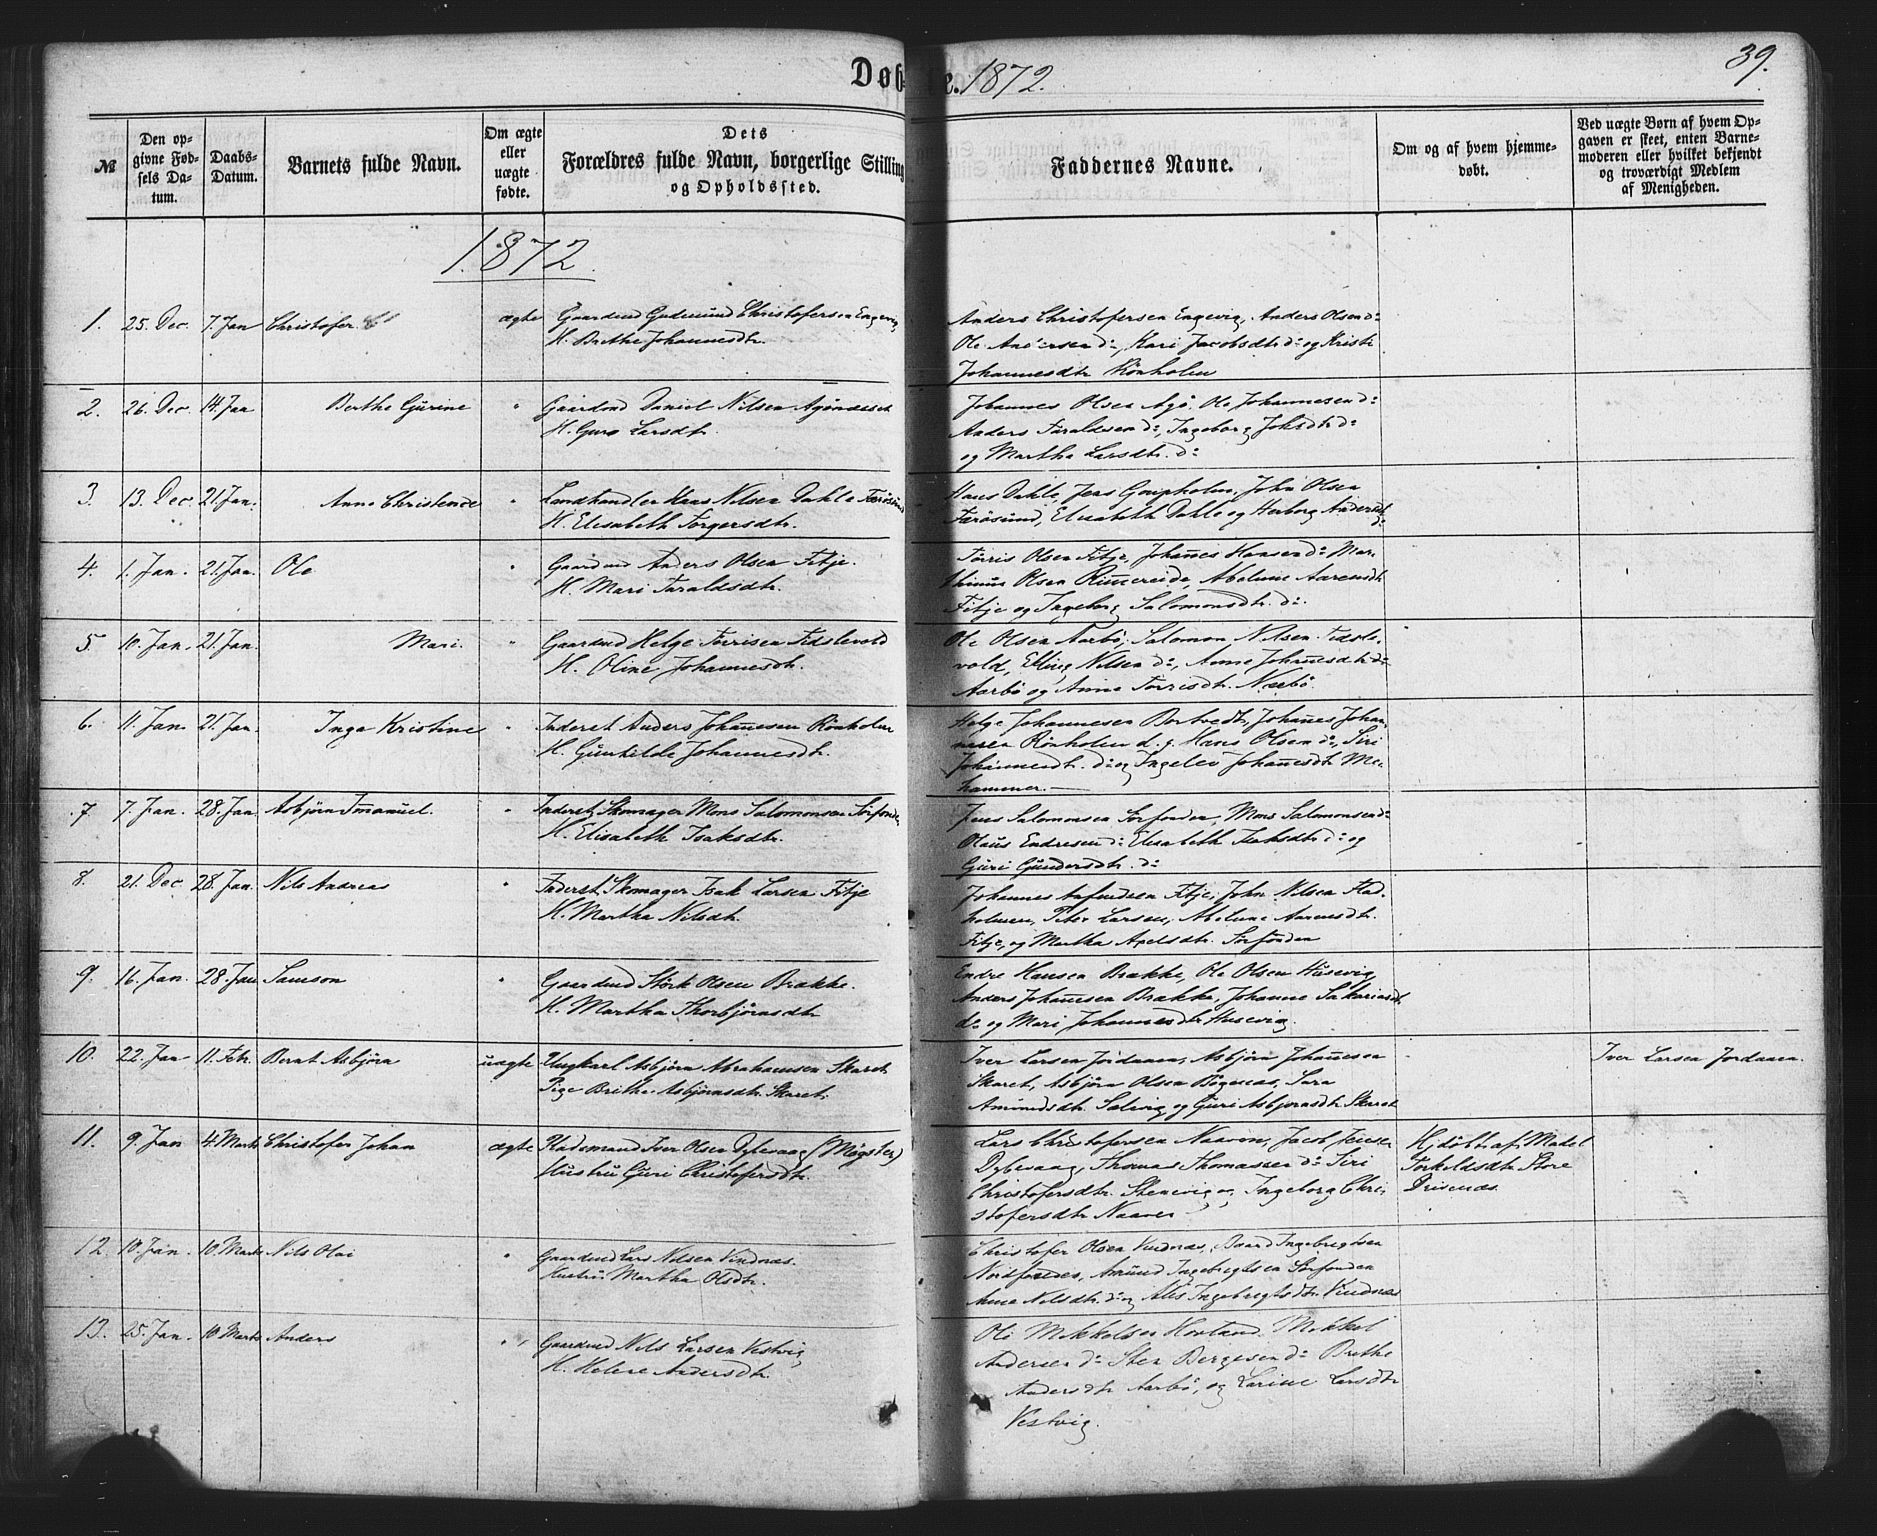 Døbte. 1872.
39.
№
Den opgivne Fødsels Datum.
Daabs-Datum.
Barnets fulde Navn.
Om ægte eller uægte fødte.
Dets Forældres fulde Navn, borgerlige Stilling og Opholdssted.
Faddernes Navne.
Om og af hvem hjemmedøbt.
Ved uægte Børn af hvem Opgaven er skeet, enten Barnemoderen eller hvilket bekjendt og troværdigt Medlem af Menigheden.
1872.
1. 25. Dec. 7. Jan Christofer ægte Gaardmd Gudmund Christofersen Engevig
H. Brithe Johannesdtr.
Anders Christofersen Engevig, Anders Olsen do
Ole Andersen do, Kari Jacobsdtr do og Kristi
Johannesdtr Rönholen
2. 26. Dec. 14. Jan Berthe Gurine " Gaardmd Daniel Nilsen Agönæsset
H. Guro Larsdtr.
Johannes Olsen Agö, Ole Johannesen do
Anders Taraldsen do, Ingeborg Johsdtr do
og Martha Larsdtr. do
3. 13. Dec. 21. Jan. Anne Christence " Landhandler Hans Nilsen Dahle Færösund
H. Elisabeth Torgersdtr.
Hans Dahle, Jens Gonpholm, John Olsen
Færösund, Elisabeth Dahle og Herborg Andersdtr
do
4. 1. Jan. 21. Jan. Ole " Gaardmd Anders Olsen Fitje.
H. Mari Taraldsdtr.
Torris Olsen Fitje, Johannes Hansen do Mar-
thinus Olsen Rimereide, Abelune Aarensdtr
Fitje og Ingeborg Salomonsdtr. do.
5. 10. Jan. 21. Jan. Mari. " Gaardmd Helge Torrisen Fidslevold
H. Oline Johannesdtr.
Ole Olsen Aarbö, Salomon Nilsen Fidsle-
vold, Elling Nilsen do, Anne Johannesdtr do
Aarbö og Anna Torrisdtr. Nærbö.
6. 11. Jan. 21. Jan. Inga Kristine " Inderst Anders Johannesen Rönholen
H. Gunhilde Johannesdtr.
Helge Johannesen Bortvedt, Johannes Johan-
nesen Rönholen d. y. Hans Olsen do, Siri
Johannesdtr. do og Ingelev Johannesdtr Me-
hammer. —
7. 7. Jan. 28. Jan. Asbjørn Imanuel. " Inderst, Skomager Mons Salomonsen Sörfonden
H. Elisabeth Isaksdtr.
Jens Salomonsen Sörfonden, Mons Salomonsen do
Olaus Endresen do Elisabeth Isaksdtr do og
Guri Gundersdtr. do
8. 21. Dec. 28. Jan. Nils Andreas " Inderst, Skomager Isak Larsen Fitje
H. Martha Nilsdtr.
Johannes Anfindsen Fitje, John Nilsen Flad-
holmen, Peter Larsen, Abelune Aarensdtr.
Fitje, og Martha Axelsdtr. Sörfonden
9. 16. Jan. 28. Jan. Samson " Gaardmd Störk Olsen Brække.
H. Martha Thorbjörnsdtr
Endre Hansen Brække, Ole Olsen Husevig
Anders Johannesen Brække, Johanne Sakariasdtr.
do og Mari Johannesdtr Husevig.
10. 22. Jan 11. Febr. Bernt Asbjörn uægte Ungkarl Asbjörn Abrahamsen Skaret.
Pige Brithe Asbjörnsdtr. Skaret.
Iver Larsen Jordaaen, Asbjörn Johannesen
Skaret, Asbjörn Olsen Bögenæs, Sara
Amundsdtr. Solvig og Guri Asbjörnsdtr. Skaret
Iver Larsen Jordaaen.
11. 9. Jan 4. Marts Christofer Johan ægte Pladsmand Iver Olsen Dybevaag (Møgster)
Hustru Guri Christofersdtr.
Lars Christofersen Naavön, Jacob Jensen
Dybevaag, Thomas Thomassen do Siri
Christofersdtr. Stenevig og Ingeborg Chri-
stofersdtr. Naaven
Hjdöbt af Madel
Torkildsdtr Store
Drisenæs.
12. 10. Jan. 10. Marts Nils Olai " Gaardmd Lars Nilsen Vindnæs.
Hustru Martha Olsdtr.
Christofer Olsen Vindnæs, Baard Ingebrigtsen
Nordfonnæs, Amund Ingebrigtsen Sörfonden
Anna Nilsdtr. do og Alis Ingebrigtsdtr. Vindnæs
13. 25. Jan. 10. Marts Anders " Gaardmd Nils Larsen Vestvig
H. Helene Andersdtr.
Ole Mikkelsen Hovland, Mikkel
Andersen do Sten Bergesen do Brithe
Andersdtr Aarbö, og Larine Larsdtr
Vestvig.